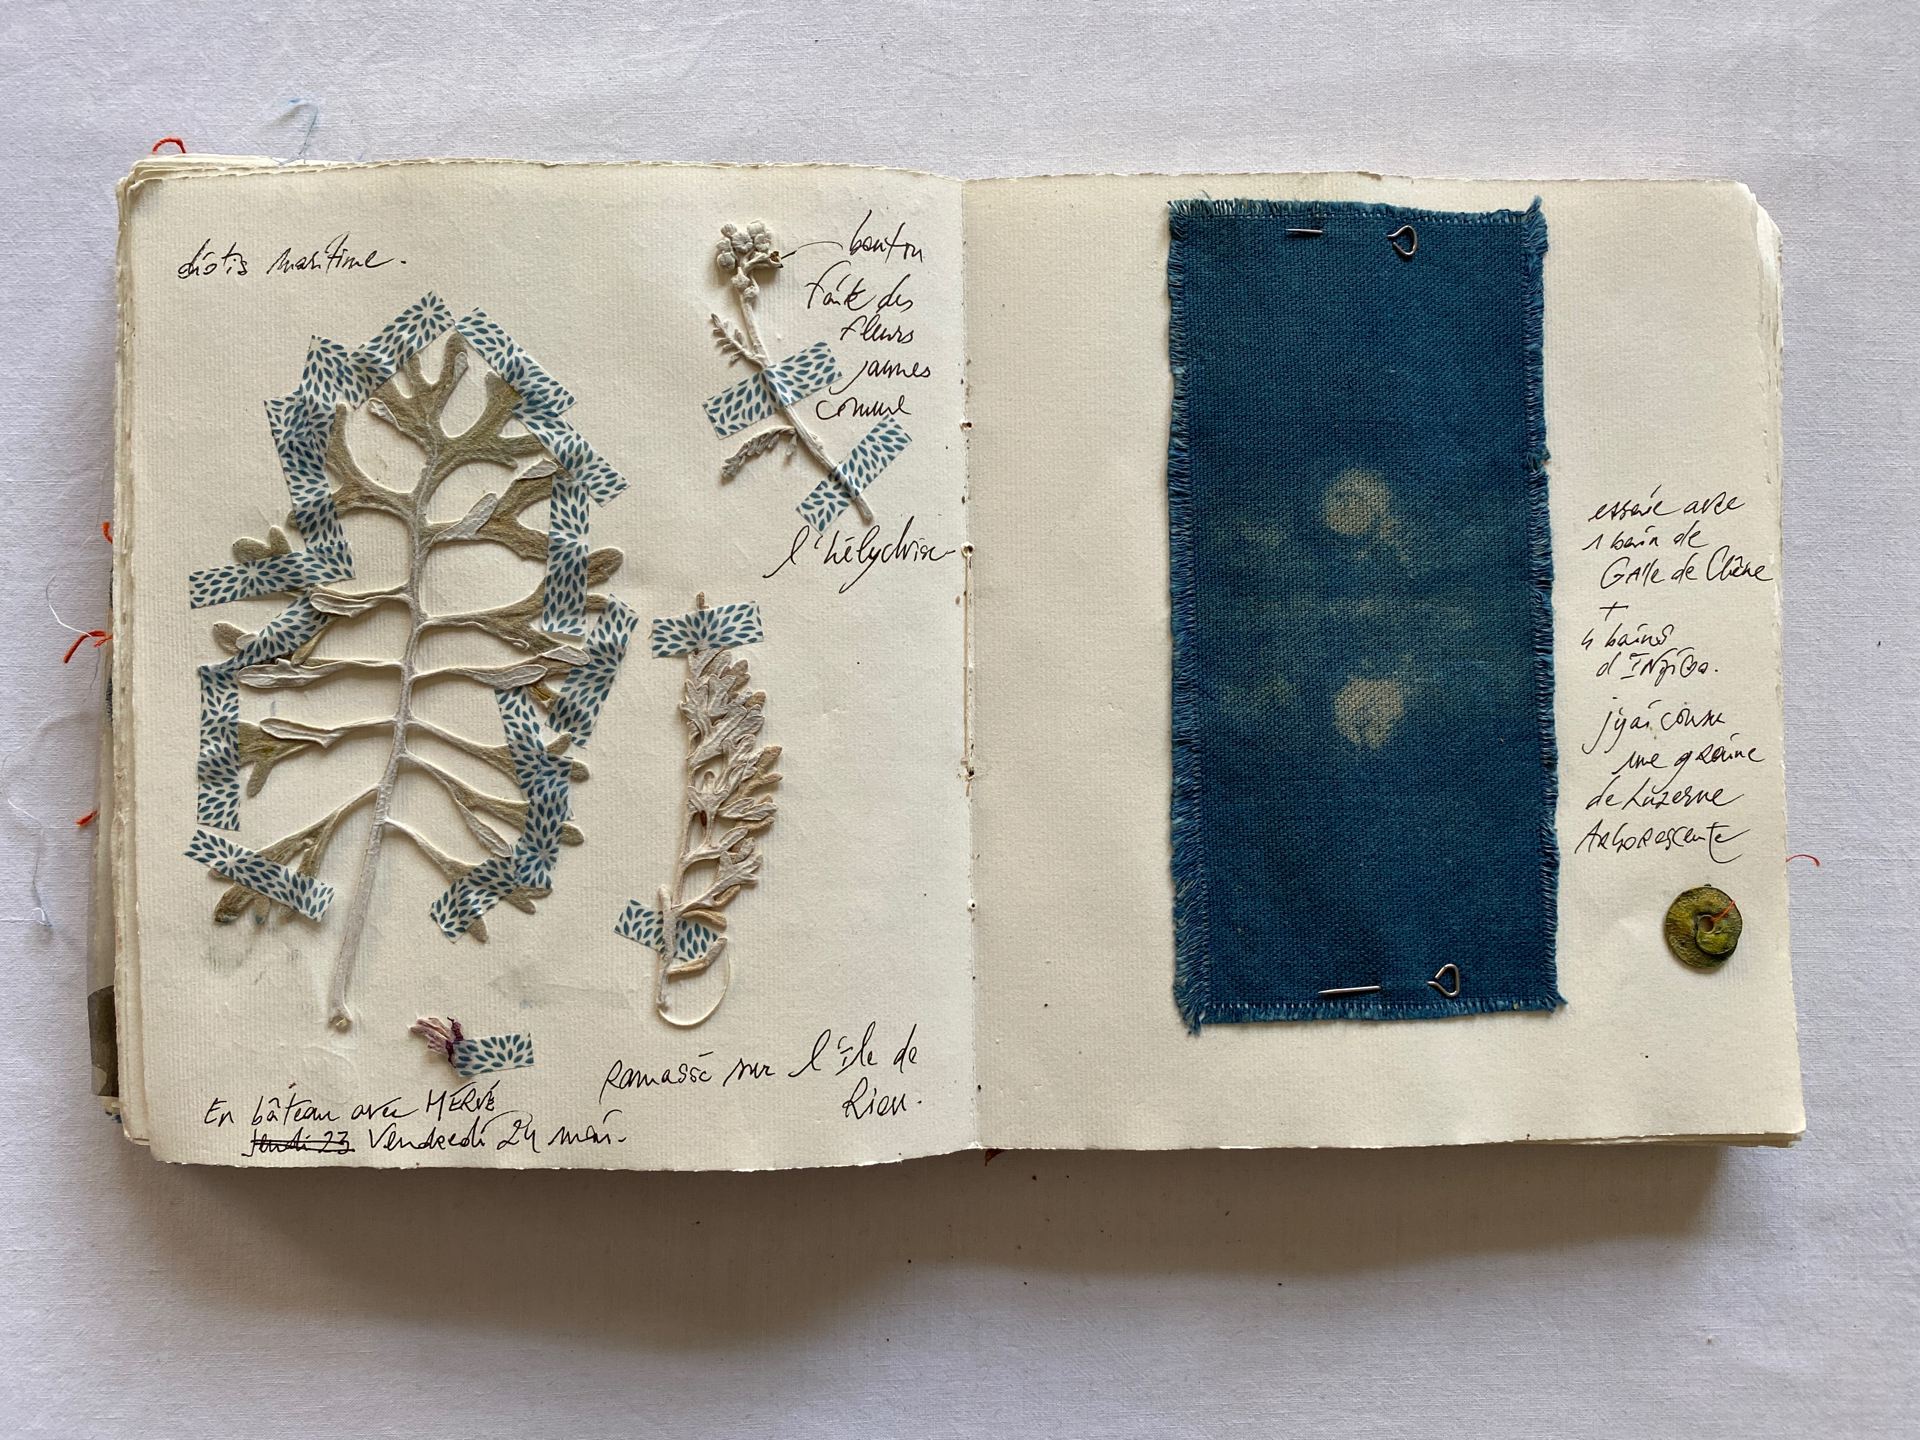 diotis maritime.
bouton
faite des
fleurs
jaunes
comme
l'hélychrise
Ramassé sur l'Ile de
Riou.
En bâteau avec HERVÉ
Jeudi 23 Vendredi 24 mai.
essaie avec
1 bain de
Galle de Chêne
+
4 bains
d'INdiGo.
j'y ai cousu
une graine
de Luzerne
Arborescente